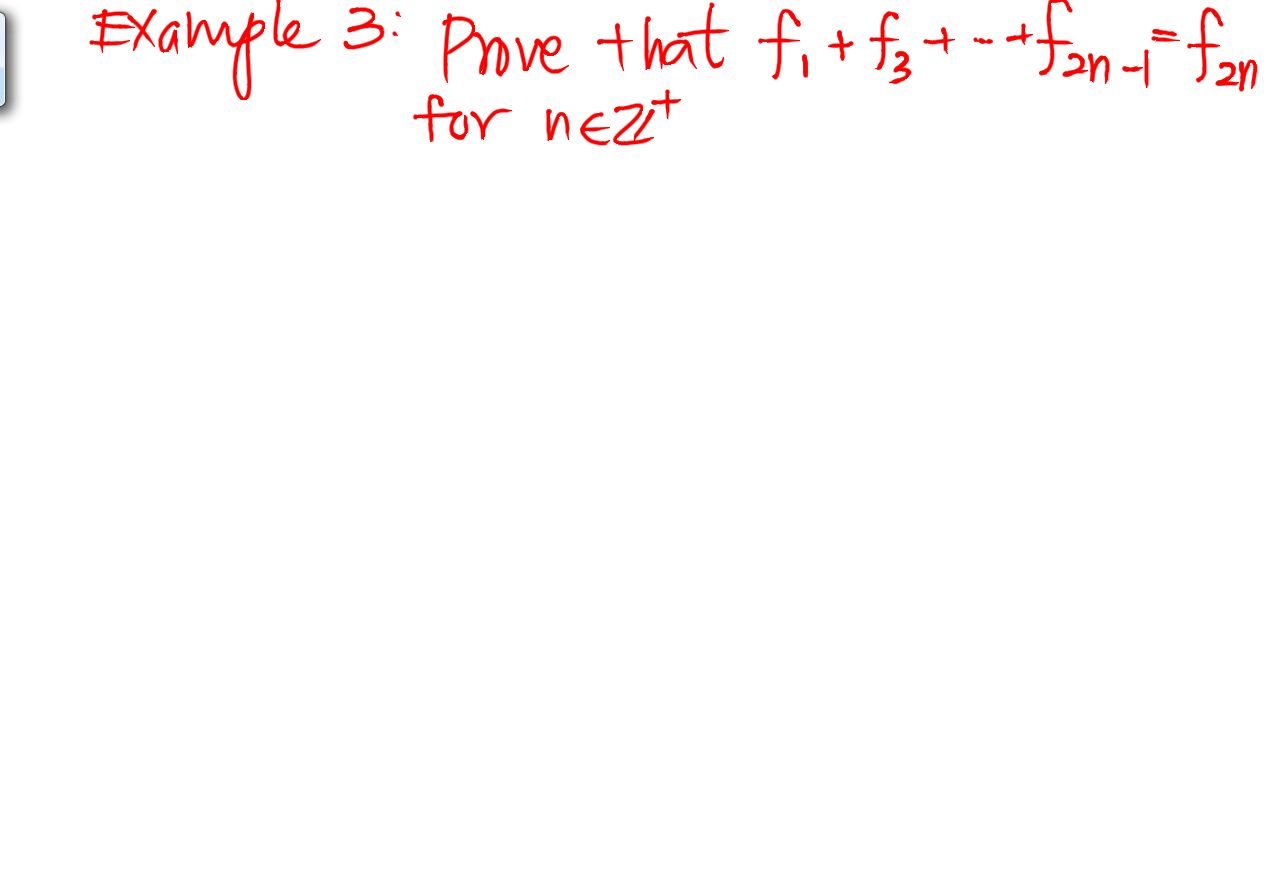 Example 3: Prove that f₁ + f₃ + -- + f₂ₙ₋₁ = f₂ₙ
for n∈ℤ⁺